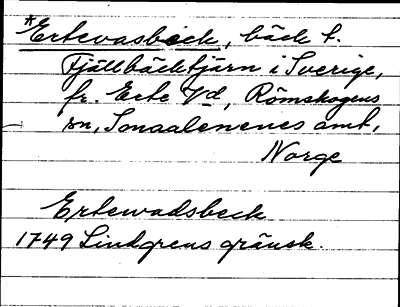 *Ertevasbeck, bäck t.
Fjällbäcktjärn i Sverige,
fr. Erte Vd, Römskogens
sn, Smaalenenes amt,
Norge
Ertewadsbeck
1749 Lindgrens gränsk.